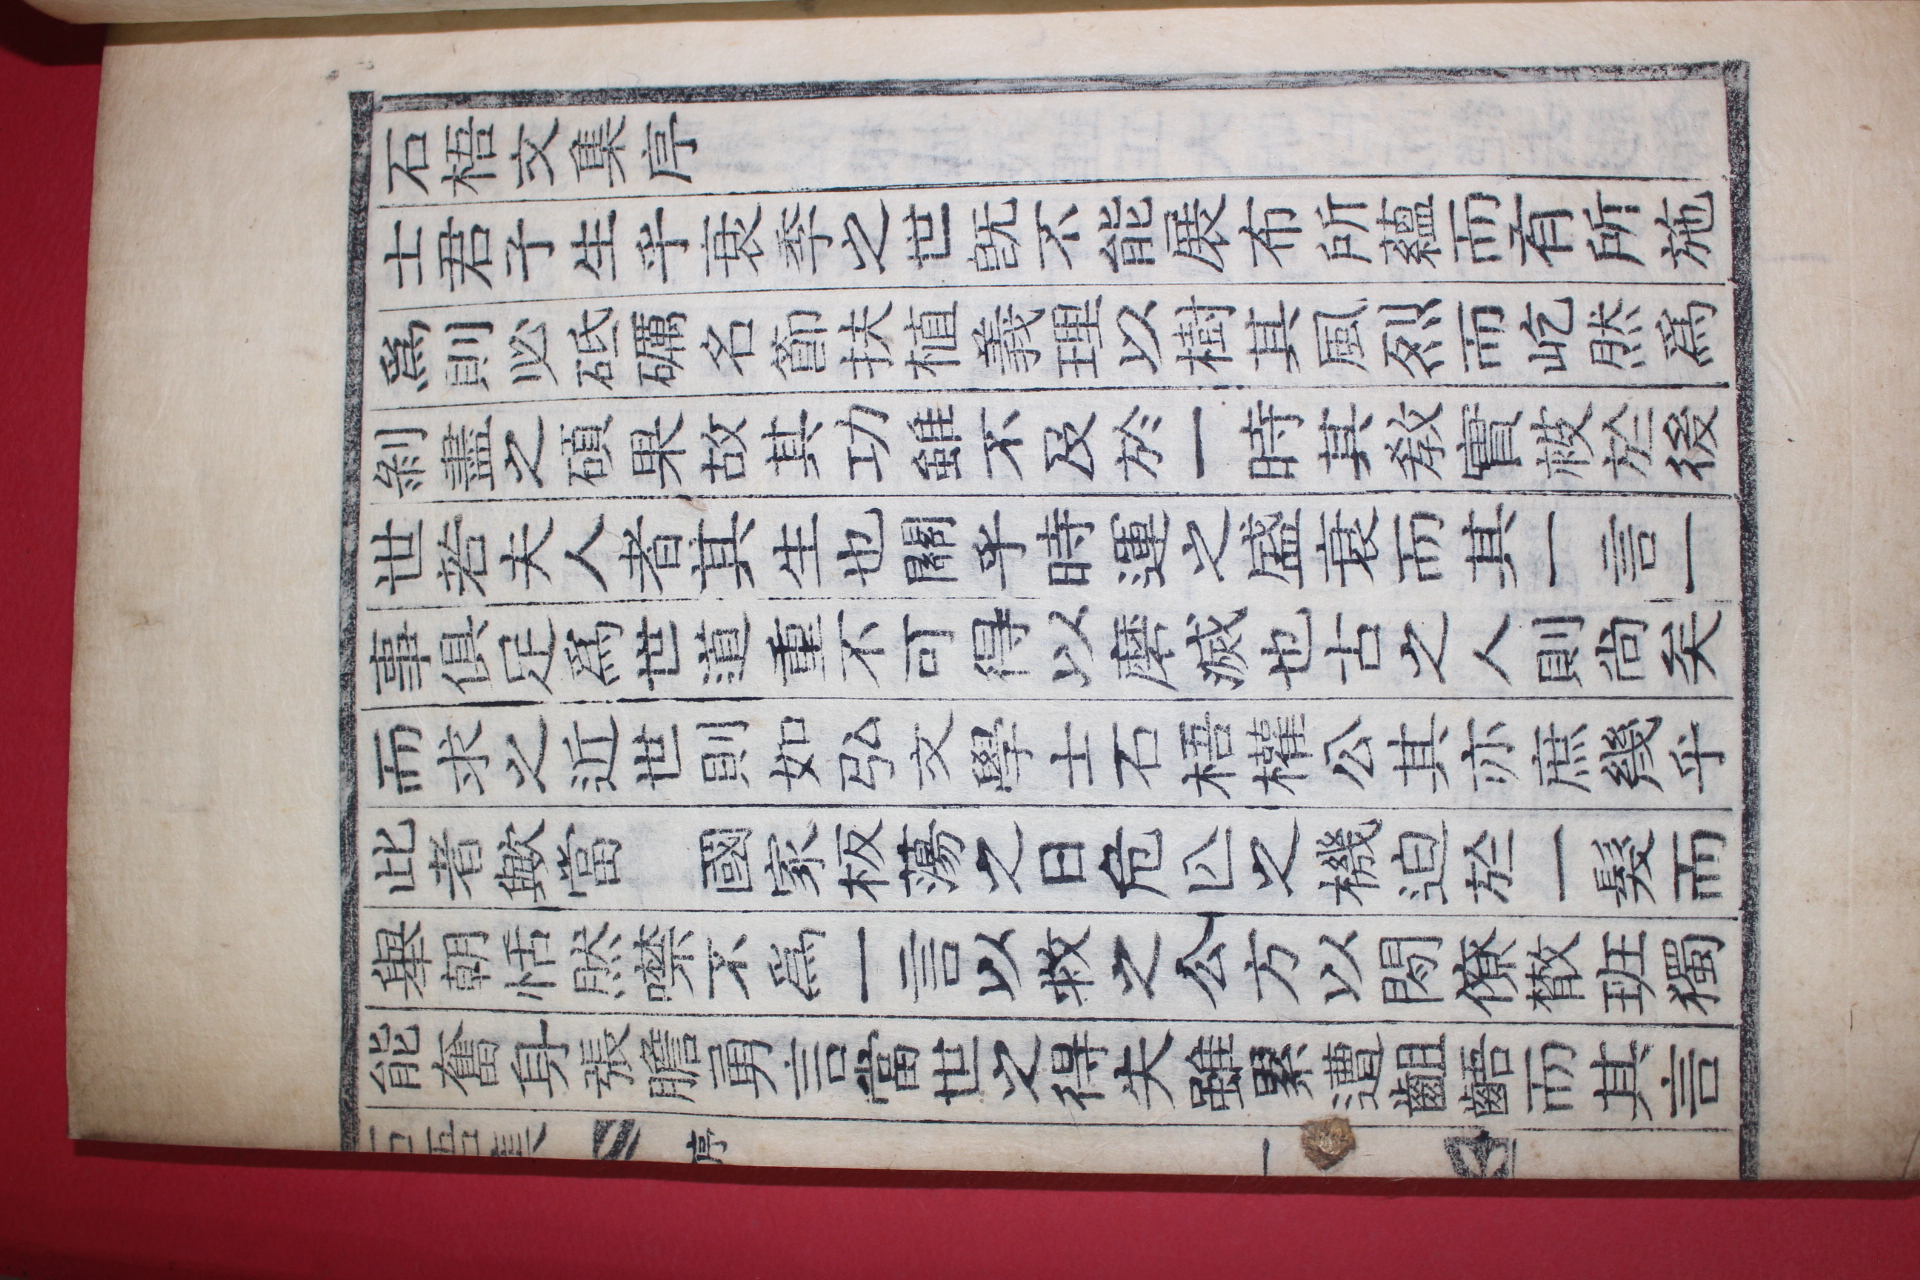 石梧文集序
士君子生乎衰季之世旣不能展布所蘊而有所施
爲則必砥礪名節扶植義理以樹其風烈而屹然爲
剝盡之碩果故其功雖不及於一時其敎實被於後
世若夫人者其生也關乎時運之盛衰而其一言一
事俱足爲世道重不可得以磨滅也古之人則尙矣
而求之近世則如弘文學士石梧權公其亦庶幾乎
此者歟當 國家板蕩之日危亾之機迫於一髮而
擧朝恬然噤不爲一言以救之公方以閑僚散班獨
能奮身張膽勇言當世之得失雖累遭齟齬而其言
石梧集 序 一